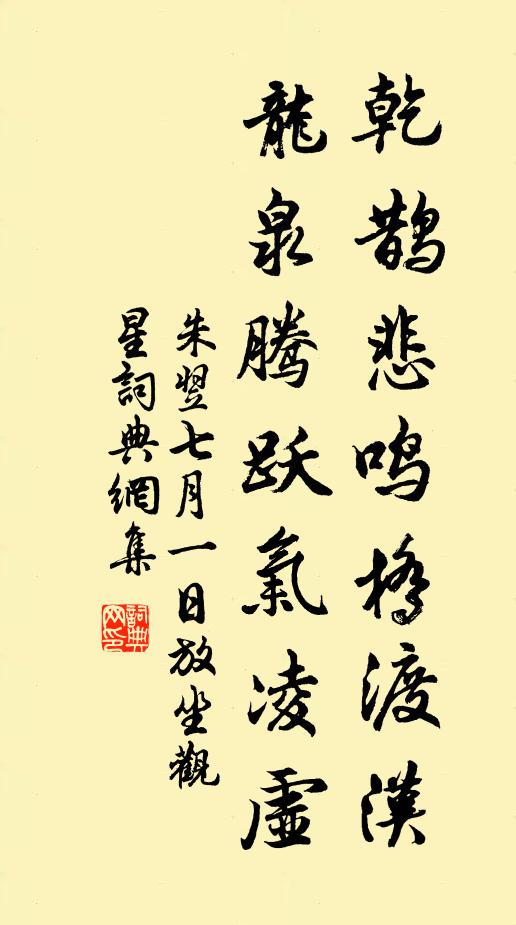 乾鹊悲鳴橋渡漢
龍泉騰跃氣凌虛
朱翌七月一日放坐觀
星詞典網集
詞典
网印